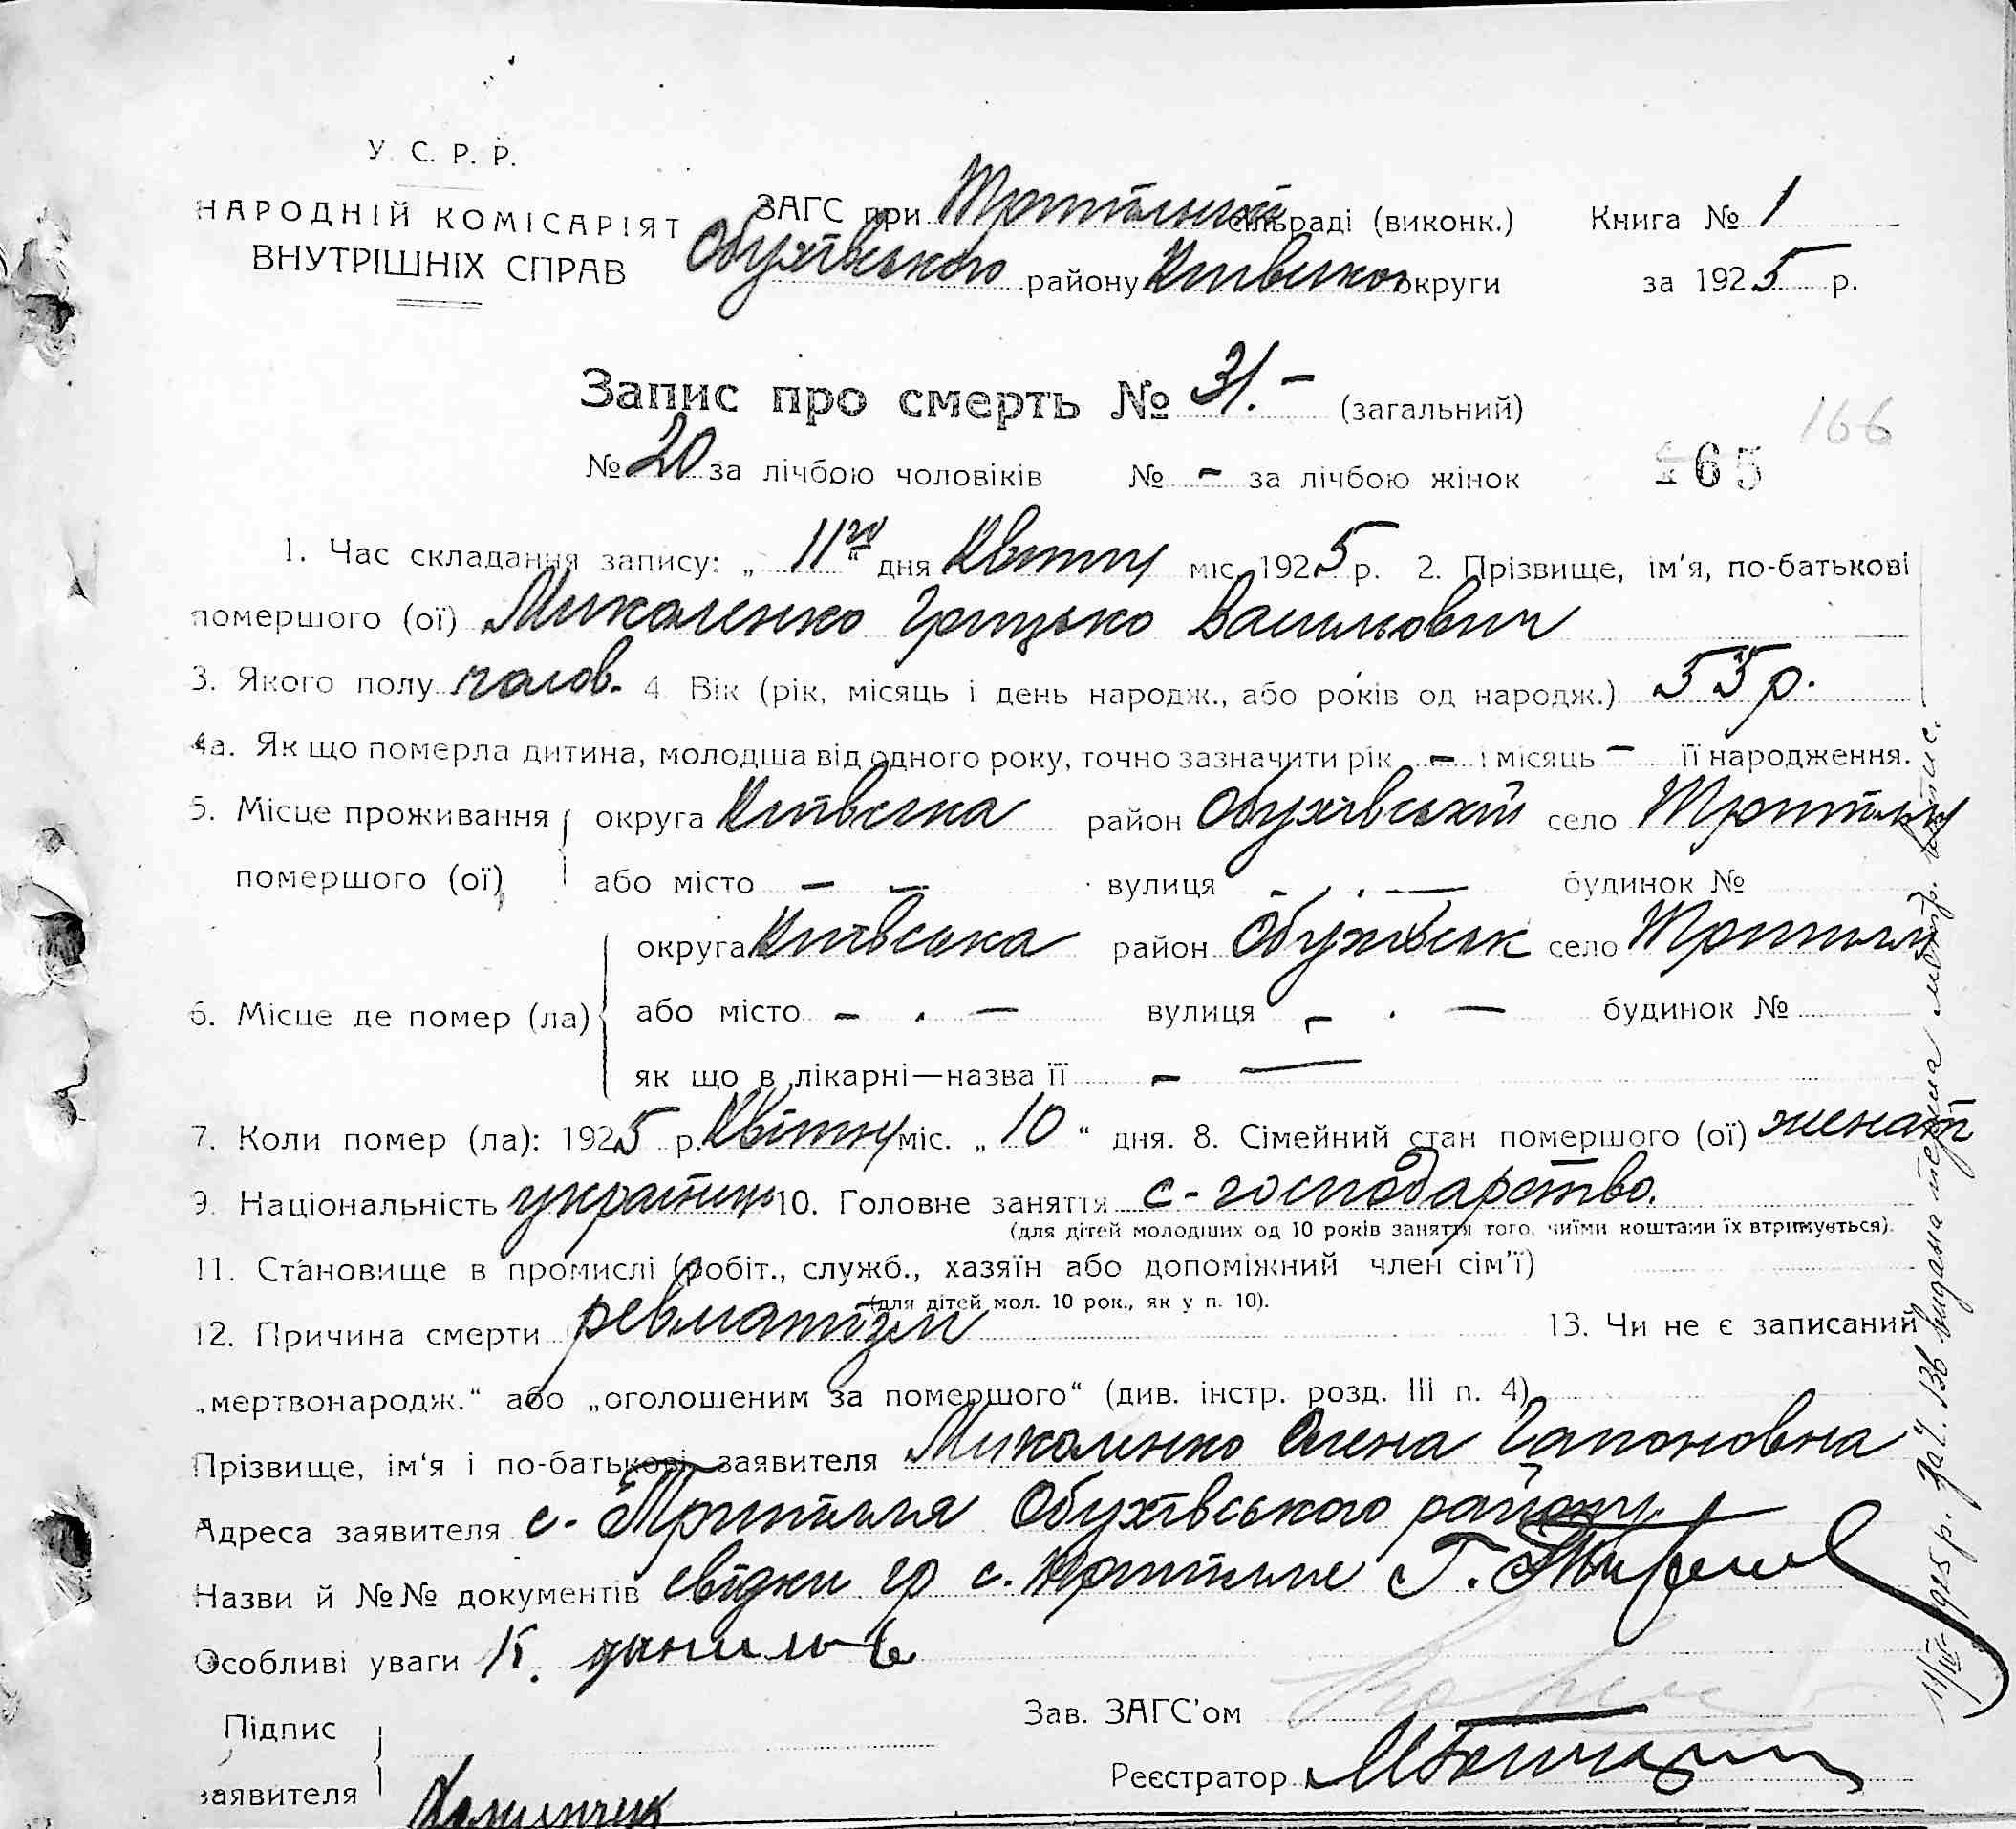 У. С. Р. Р.
НАРОДНІЙ КОМІСАРІЯТ
ВНУТРІШНІХ СПРАВ
ЗАГС при Трипільській сільраді (виконк.) Книга № 1
Обухівського району Київської округи за 1925 р.
Запис про смерть № 31.- (загальний)
166
№ 20 за лічбою чоловіків № - за лічбою жінок 165
1. Час складання запису: „ 11го “ дня Квітня міс. 1925 р. 2. Прізвище, ім'я, по-батькові
помершого (ої) Миколенко Грицько Васильович
3. Якого полу чолов. 4. Вік (рік, місяць і день народж., або років од народж.) 55 р.
4а. Як що померла дитина, молодша від одного року, точно зазначити рік - і місяць - її народження.
5. Місце проживання округа Київська район Обухівський село Трипілля
помершого (ої) або місто - - вулиця - . - будинок №
округа Київська район Обухівськ село Трипілля
6. Місце де помер (ла) або місто - . - вулиця - . - будинок №
як що в лікарні—назва її - -
7. Коли помер (ла): 1925 р. Квітня міс. „ 10 “ дня. 8. Сімейний стан помершого (ої) женат
9. Національність українець 10. Головне заняття с-господарство.
(для дітей молодших од 10 років заняття того, чиїми коштами їх втримується).
11. Становище в промислі (робіт., служб., хазяїн або допоміжний член сім'ї)
(для дітей мол. 10 рок., як у п. 10).
12. Причина смерти ревматізм 13. Чи не є записаний
„мертвонародж.“ або „оголошеним за помершого“ (див. інстр. розд. III п. 4)
Прізвище, ім'я і по-батькові заявителя Миколенко Олена Гапоновна
Адреса заявителя с. Трипілля Обухівського району
Назви й №№ документів свідки гр с. Трипілля Г.
Особливі уваги К.
Підпис
заявителя
Зав. ЗАГС'ом
Реєстратор